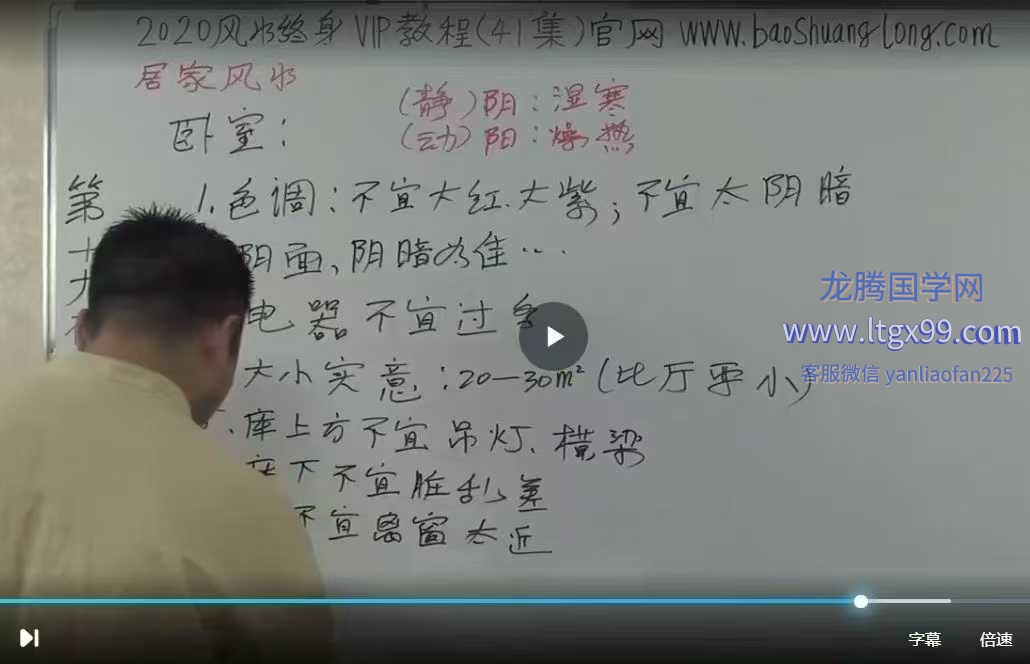 2020风水终身VIP教程(41集)官网 www.baoshuanglong.com
居家风水
卧室：
(静)阴：湿寒
(动)阳：燥热
第
1.色调：不宜大红.大紫；不宜太阴暗
阴面、阴暗为佳…
电器不宜过多
大小实意：20—30m²(比厅要小)
床上方不宜吊灯.横梁
床下不宜脏乱差
不宜离窗太近
龙腾国学网
www.ltgx99.com
客服微信 yanliaofan225
字幕
倍速